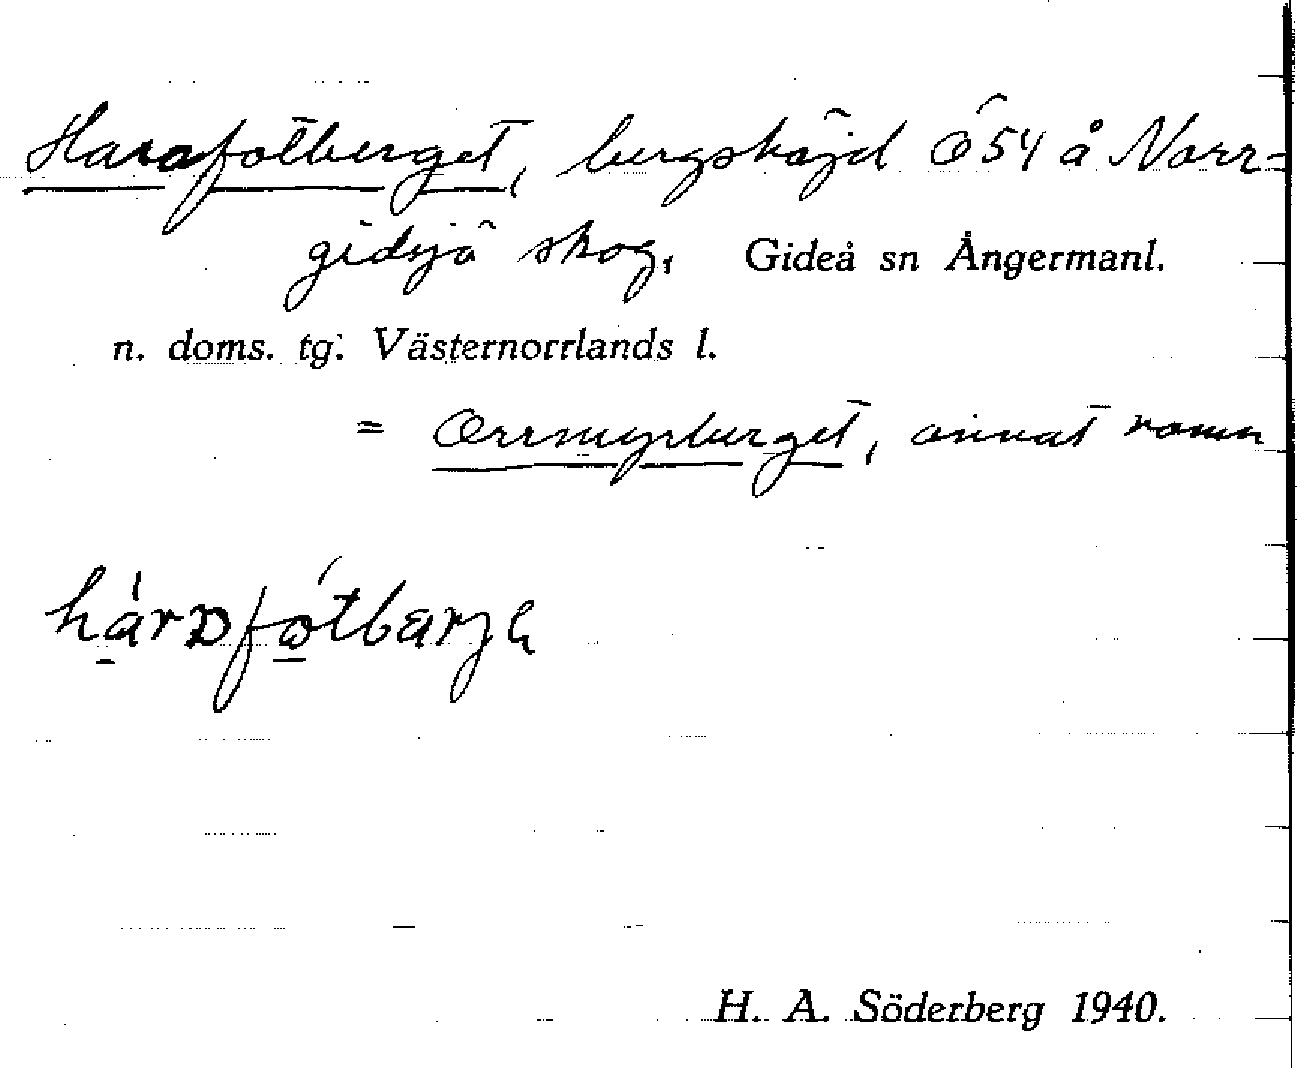 Harafotberget, bergshöjd Ö54 å Norr=
gidsjö skog, Gideå sn Ångermanl.
n. doms. tg. Västernorrlands l.
= Orrmyrberget, annat namn
H. A. Söderberg 1940.